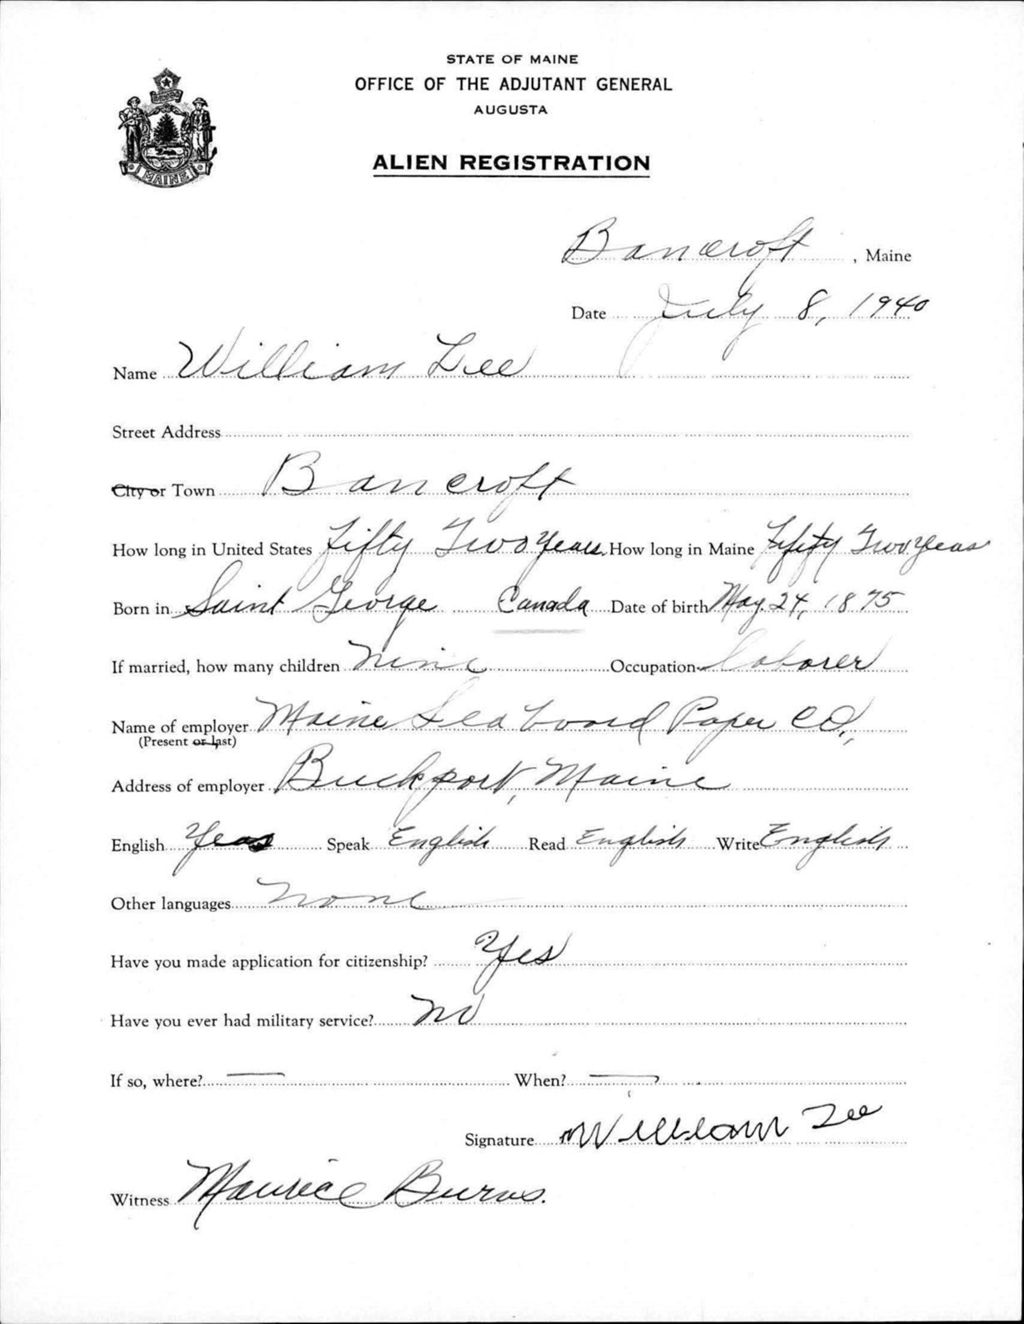 STATE OF MAINE
OFFICE OF THE ADJUTANT GENERAL
AUGUSTA
MAINE
ALIEN REGISTRATION
Bancroft, Maine
Date July 8, 1940
Name William Lee
Street Address
City or Town Bancroft
How long in United States Fifty Two Years How long in Maine Fifity Two Yeas
Born in Saint George Canada Date of birth May 24, 1875
If married, how many children Nine Occupation laborer
Name of employer Maine Seaboard Paper CO.,
(Present or last)
Address of employer Buckport, Maine
English Yeas Speak English Read English Write English
Other languages none
Have you made application for citizenship? Yes
Have you ever had military service? no
If so, where? — When? —
Signature William Lee
Witness Maurice Burns.